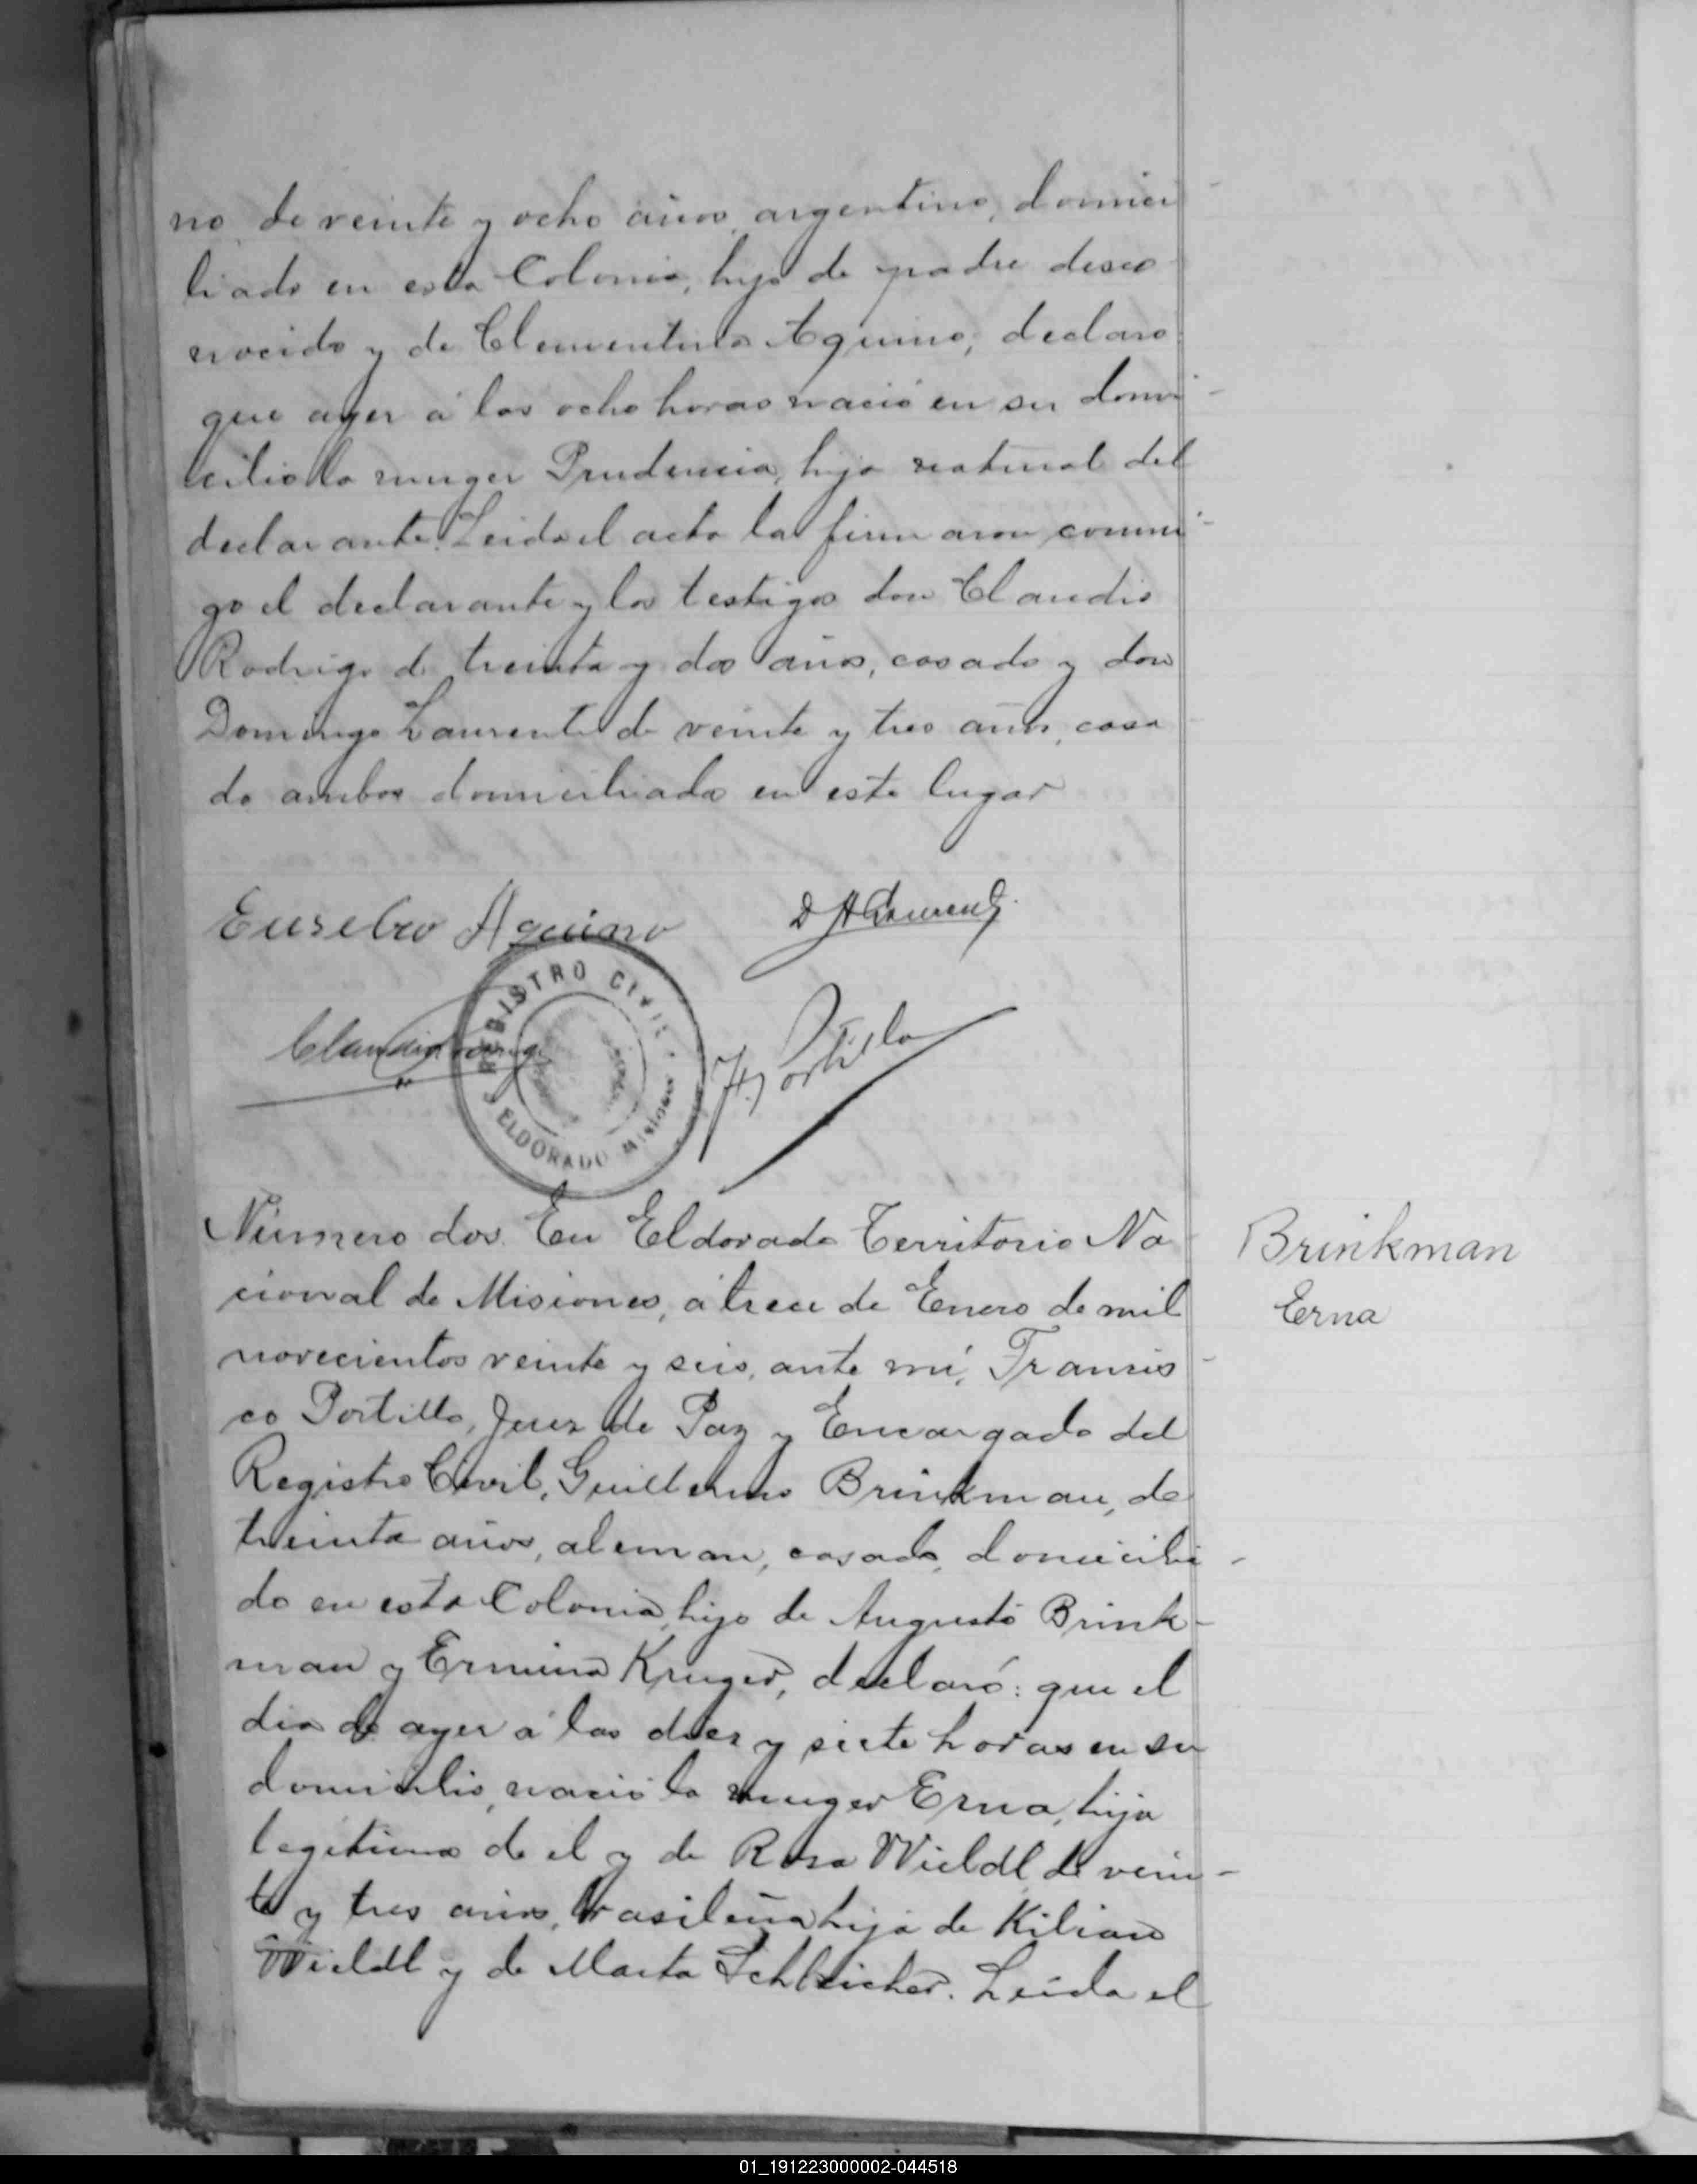 no de veinte y ocho años, argentino, domici
liado en esta Colonia, hijo de padre desco
nocido y de Clementina Aquino, declaro
que ayer á las ocho horas nació en su domi-
cilio la muger Prudencia, hija natural del
declarante. Leida el acta la firmaron conmi-
go el declarante y los testigos don Claudio
Rodrigo de treinta y dos años, casado y don
Domingo Laurent de veinte y tres años, casa
do ambos domiciliados en este lugar
Eusebio Aquino
D A Laurent
REGISTRO CIVIL
ELDORADO Misiones
F. Portillo
Número dos. En Eldorado Territorio Na
cional de Misiones, á trece de Enero de mil
novecientos veinte y seis, ante mí, Francis-
co Portillo, Juez de Paz y Encargado del
Registro Civil, Guillermo Brinkman, de
treinta años, aleman, casado, domicilia-
do en esta Colonia, hijo de Augusto Brink-
man y Ermina Kruger, declaró: que el
dia de ayer á las diez y siete horas en su
domicilio, nació la muger Erna, hija
legitima de el y de Rosa Wieldl de vein-
te y tres años, brasileña hija de Kilian
Wieldl y de Marta Schleicher. Leida el
Brinkman
Erna
01_191223000002-044518